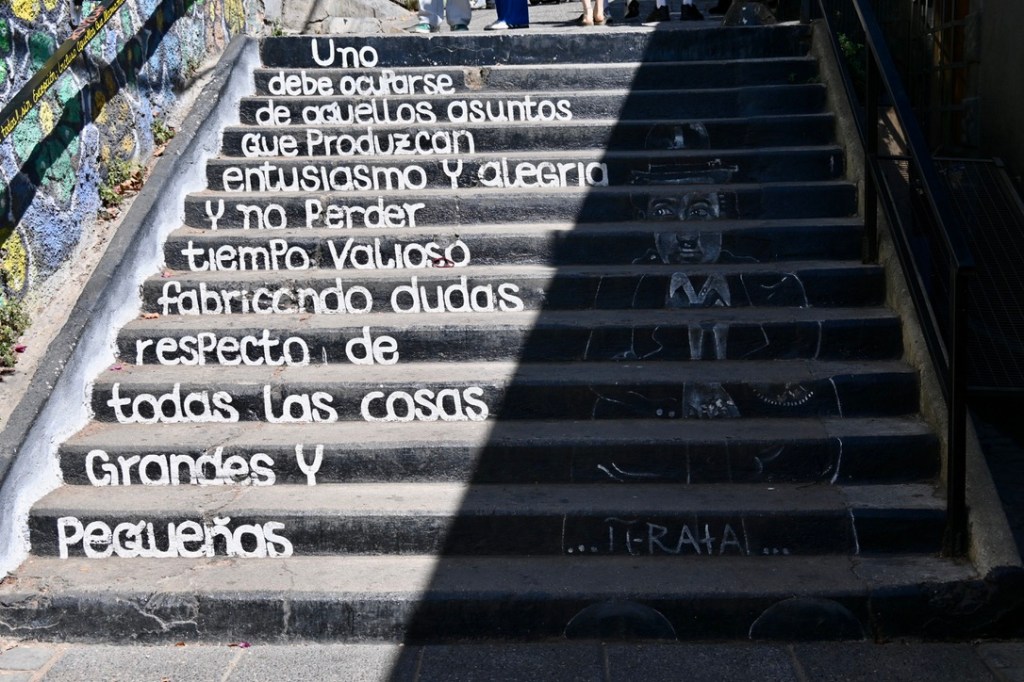 Uno
debe ocuparse
de aquellos asuntos
que Produzcan
entusiasmo Y alegria
Y no Perder
tiempo Valioso
fabricando dudas
respecto de
todas las cosas
Grandes Y
Pequeñas
... Ti-RAtA ...